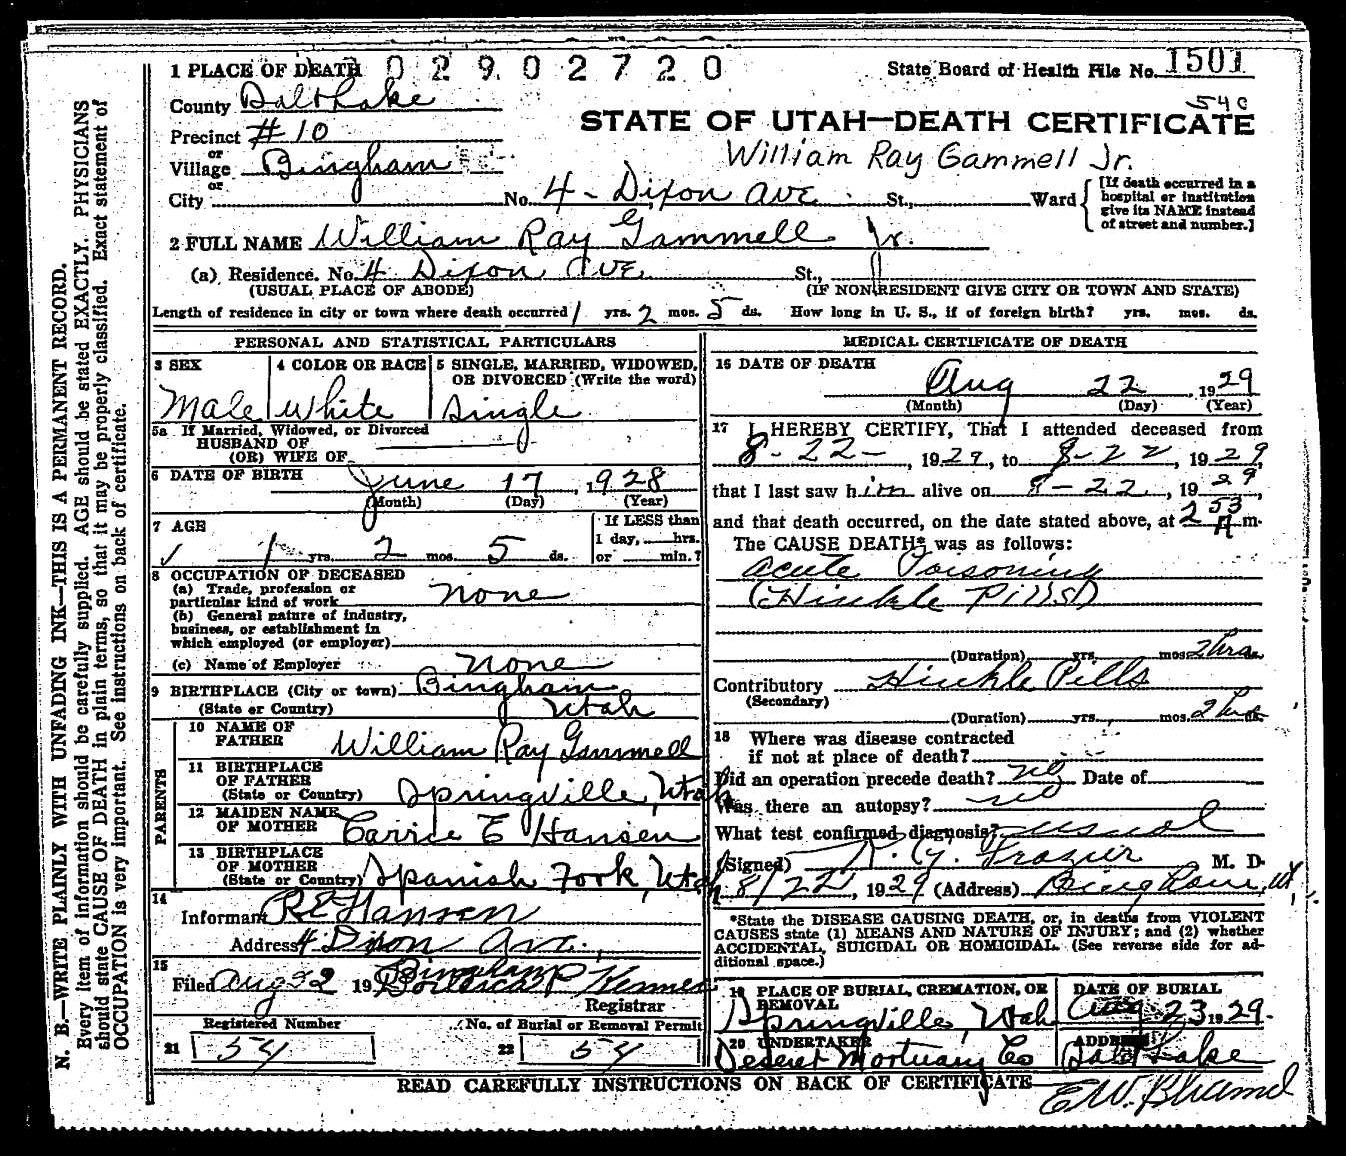 1 PLACE OF DEATH 102902720
State Board of Health File No. 1501
County Salt Lake
54 C
Precinct #10
STATE OF UTAH—DEATH CERTIFICATE
or
Village Bingham
William Ray Gammell Jr.
or
City No. 4 - Dixon Ave. St., Ward
[If death occurred in a
hospital or institution
give its NAME instead
of street and number.]
2 FULL NAME William Ray Gammell Jr.
(a) Residence. No. 4 Dixon Ave. St.,
(USUAL PLACE OF ABODE) (IF NONRESIDENT GIVE CITY OR TOWN AND STATE)
Length of residence in city or town where death occurred 1 yrs. 2 mos. 5 ds. How long in U. S., if of foreign birth? yrs. mos. ds.
PERSONAL AND STATISTICAL PARTICULARS
3 SEX 4 COLOR OR RACE 5 SINGLE, MARRIED, WIDOWED,
OR DIVORCED (Write the word)
Male White Single
5a If Married, Widowed, or Divorced
HUSBAND OF
(OR) WIFE OF
6 DATE OF BIRTH June 17, 1928
(Month) (Day) (Year)
7 AGE
1 yrs. 2 mos. 5 ds.
If LESS than
1 day, hrs.
or min.?
8 OCCUPATION OF DECEASED
(a) Trade, profession or
particular kind of work none
(b) General nature of industry,
business, or establishment in
which employed (or employer)
(c) Name of Employer none
9 BIRTHPLACE (City or town) Bingham
(State or Country) Utah
PARENTS
10 NAME OF
FATHER William Ray Gammell
11 BIRTHPLACE
OF FATHER
(State or Country) Springville, Utah
12 MAIDEN NAME
OF MOTHER Carrie E Hansen
13 BIRTHPLACE
OF MOTHER
(State or Country) Spanish Fork, Utah
14
Informant R E Hansen
Address 4 Dixon Ave.,
15
Filed Aug 22 19 Bingham
Registrar
Registered Number No. of Burial or Removal Permit
21 54 22 54
MEDICAL CERTIFICATE OF DEATH
16 DATE OF DEATH
Aug 22, 1929
(Month) (Day) (Year)
17 I HEREBY CERTIFY, That I attended deceased from
8-22-, 1929, to 8-22, 1929,
that I last saw him alive on 8-22, 1929,
and that death occurred, on the date stated above, at 2 53 A m.
The CAUSE DEATH* was as follows:
Acute Poisoning
(Hinkle Pills)
(Duration) yrs. mos. 2 hrs ds.
Contributory Hinkle Pills
(Secondary)
(Duration) yrs., mos. 2 hrs ds.
18 Where was disease contracted
if not at place of death?
Did an operation precede death? no Date of
Was there an autopsy? no
What test confirmed diagnosis? usual
(Signed) R. G. Frazier M. D.
8/22, 1929 (Address) Bingham, Ut.
*State the DISEASE CAUSING DEATH, or, in deaths from VIOLENT
CAUSES state (1) MEANS AND NATURE OF INJURY; and (2) whether
ACCIDENTAL, SUICIDAL OR HOMICIDAL. (See reverse side for ad-
ditional space.)
19 PLACE OF BURIAL, CREMATION, OR
REMOVAL
DATE OF BURIAL
Springville, Utah Aug 23 1929.
20 UNDERTAKER ADDRESS
Deseret Mortuary Co Salt Lake
READ CAREFULLY INSTRUCTIONS ON BACK OF CERTIFICATE
E.W.
N. B.—WRITE PLAINLY WITH UNFADING INK—THIS IS A PERMANENT RECORD.
Every item of information should be carefully supplied. AGE should be stated EXACTLY. PHYSICIANS
should state CAUSE OF DEATH in plain terms, so that it may be properly classified. Exact statement of
OCCUPATION is very important. See instructions on back of certificate.